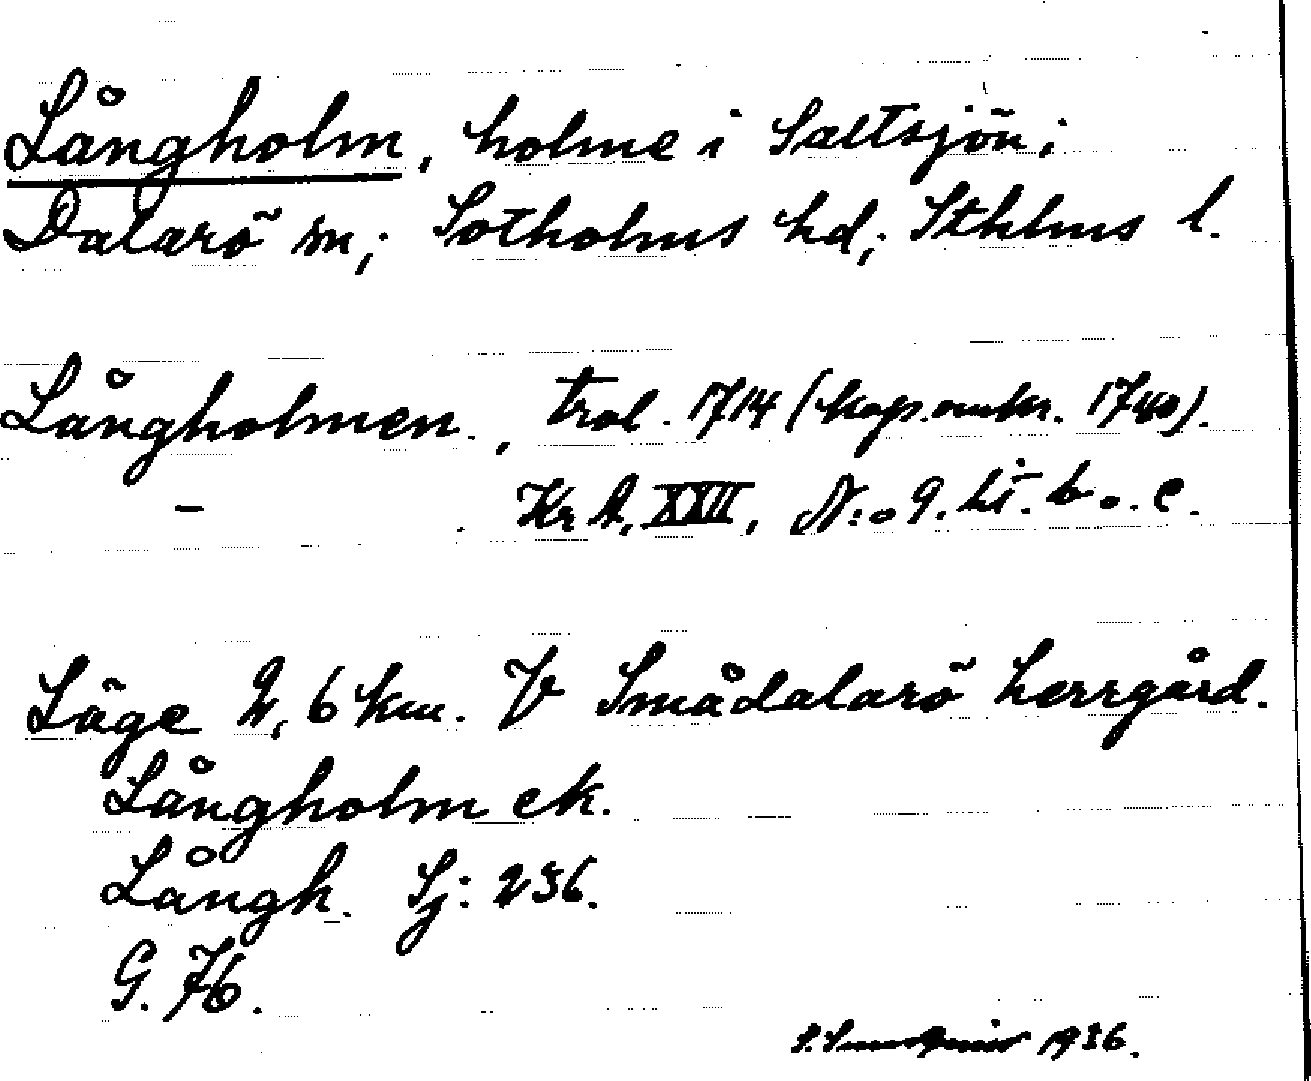 Långholm, holme i Saltsjön;
Dalarö sn; Sotholms hd; Sthlms l.
Långholmen., trol. 1714 (kop. omkr. 1740).
– . Kr A, XXII, N:o 9. lit. b. o. c.
Läge 2,6 km. V Smådalarö herrgård.
Långholm ek.
Långh. Sj: 236.
G. 76.
1936.